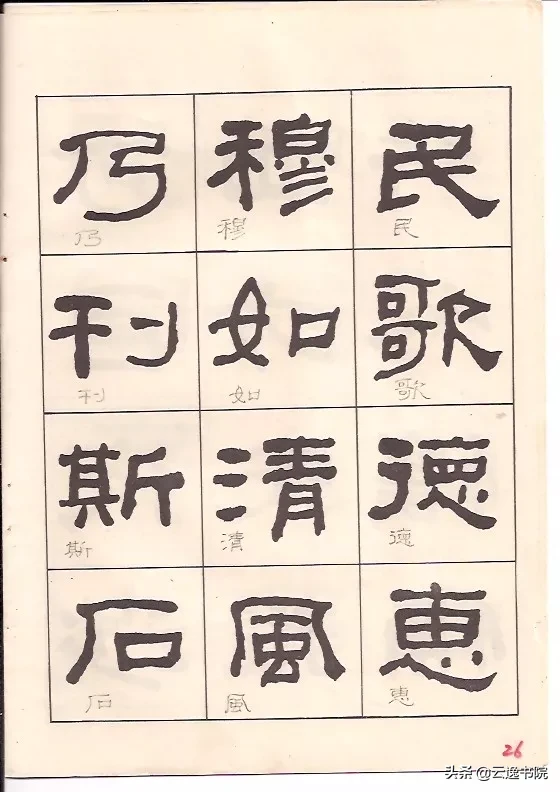 民歌德恵
民歌德恵
穆如清風
穆如清風
乃刊斯石
乃刊斯石
26
头条 @云逸书院